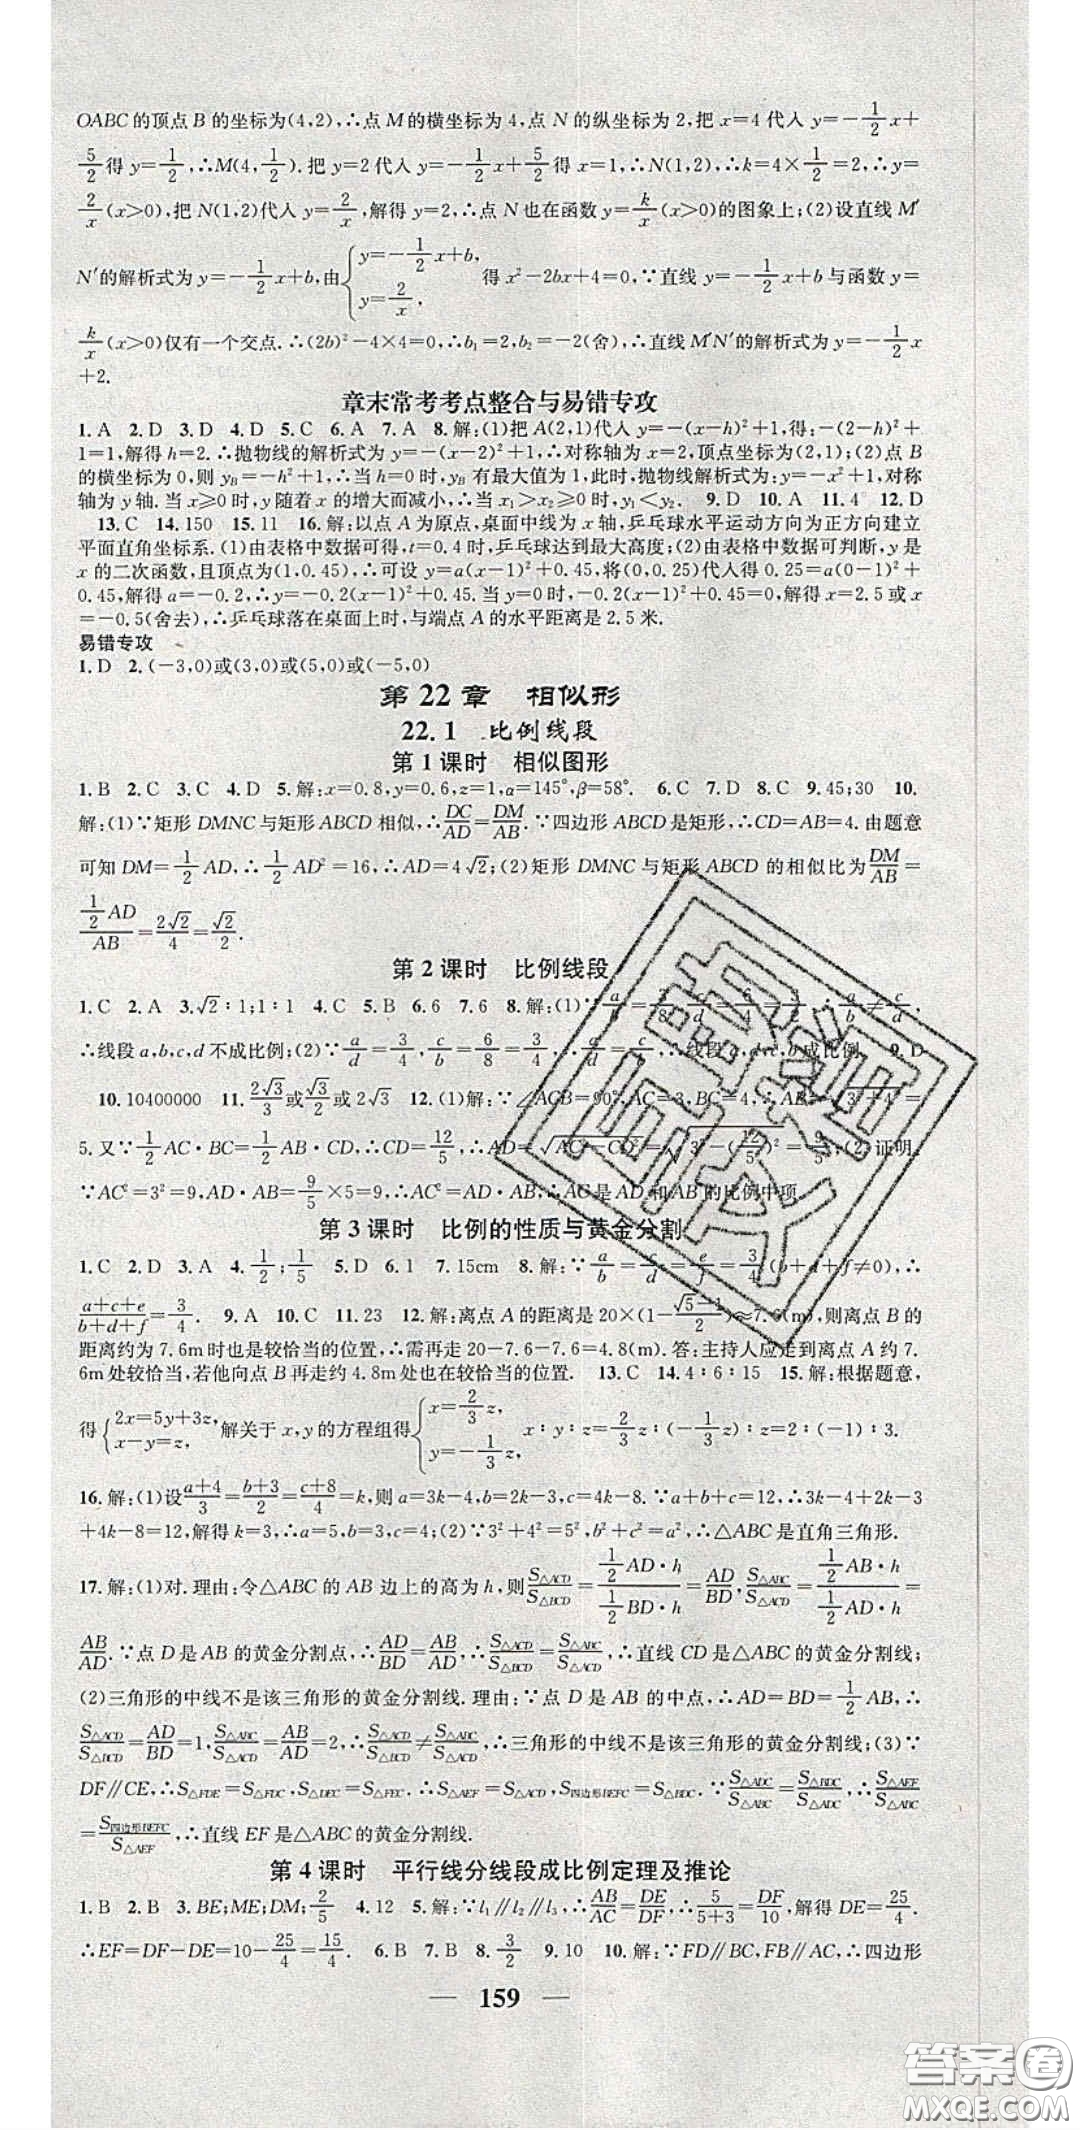 OABC的顶点B的坐标为(4,2),∴点M的横坐标为4,点N的纵坐标为2,把x=4代入y=-1/2x+
5/2得y=1/2,∴M(4,1/2).把y=2代入y=-1/2x+5/2得x=1,∴N(1,2),∴k=4×1/2=2,∴y=
2/x(x>0),把N(1,2)代入y=2/x,解得y=2,∴点N也在函数y=k/x(x>0)的图象上;(2)设直线M′
N′的解析式为y=-1/2x+b,由{y=-1/2x+b,y=2/x,得x²-2bx+4=0,∵直线y=-1/2x+b与函数y=
k/x(x>0)仅有一个交点.∴(2b)²-4×4=0,∴b₁=2,b₂=-2(舍),∴直线M′N′的解析式为y=-1/2x
+2.
章末常考考点整合与易错专攻
1.A 2.D 3.D 4.D 5.C 6.A 7.A 8.解:(1)把A(2,1)代入y=-(x-h)²+1,得:-(2-h)²+
1=1,解得h=2.∴抛物线的解析式为y=-(x-2)²+1,∴对称轴为x=2,顶点坐标为(2,1);(2)点B
的横坐标为0,则y_B=-h²+1,∴当h=0时,y_B有最大值为1,此时,抛物线解析式为:y=-x²+1,对称
轴为y轴.当x≥0时,y随着x的增大而减小,∴当x₁>x₂≥0时,y₁<y₂. 9.D 10.A 11.4 12.D
13.C 14.150 15.11 16.解:以点A为原点,桌面中线为x轴,乒乓球水平运动方向为正方向建立
平面直角坐标系.(1)由表格中数据可得,t=0.4时,乒乓球达到最大高度;(2)由表格中数据可判断,y是
x的二次函数,且顶点为(1,0.45),∴可设y=a(x-1)²+0.45,将(0,0.25)代人得0.25=a(0-1)²+
0.45,解得a=-0.2,∴y=-0.2(x-1)²+0.45.当y=0时,-0.2(x-1)²+0.45=0,解得x=2.5或x
=-0.5(舍去),∴乒乓球落在桌面上时,与端点A的水平距离是2.5米.
易错专攻
1.D 2.(-3,0)或(3,0)或(5,0)或(-5,0)
第22章 相似形
22.1 比例线段
第1课时 相似图形
1.B 2.C 3.C 4.D 5.解:x=0.8,y=0.6,z=1,α=145°,β=58°. 6.C 7.D 8.C 9.45;30 10.
解:(1)∵矩形DMNC与矩形ABCD相似,∴DC/AD=DM/AB.∵四边形ABCD是矩形,∴CD=AB=4.由题意
可知DM=1/2AD,∴1/2AD²=16,∴AD=4√2;(2)矩形DMNC与矩形ABCD的相似比为DM/AB=
(1/2AD)/AB=2√2/4=√2/2.
第2课时 比例线段
1.C 2.A 3.√2∶1;1∶1 4.C 5.B 6.6 7.6 8.解:(1)∵a/b=7/8,c/d=6/4=3/2,∴a/b≠c/d,
∴线段a,b,c,d不成比例;(2)∵a/d=3/4,c/b=6/8=3/4,∴a/d=c/b,∴线段a,d,c,b成比例. 9.D
10.10400000 11.2√3/3或√3/2或2√3 12.(1)解:∵∠ACB=90°,AC=3,BC=4,∴AB=√(3²+4²)=
5.又∵1/2AC·BC=1/2AB·CD,∴CD=12/5,∴AD=√(AC²-CD²)=√(3²-(12/5)²)=9/5;(2)证明:
∵AC²=3²=9,AD·AB=9/5×5=9,∴AC²=AD·AB,∴AC是AD和AB的比例中项.
第3课时 比例的性质与黄金分割
1.C 2.D 3.A 4.1/2;1/5 5.D 6.1 7.15cm 8.解:∵a/b=c/d=e/f=3/4(b+d+f≠0),∴
(a+c+e)/(b+d+f)=3/4. 9.A 10.C 11.23 12.解:离点A的距离是20×(1-(√5-1)/2)≈7.6(m),则离点B的
距离约为7.6m时也是较恰当的位置,∴需再走20-7.6-7.6=4.8(m).答:主持人应走到离点A约7.
6m处较恰当,若他向点B再走约4.8m处也在较恰当的位置. 13.C 14.4∶6∶15 15.解:根据题意,
得{2x=5y+3z,x-y=z,解关于x,y的方程组得{x=2/3z,y=-1/3z, x∶y∶z=2/3z∶(-1/3z)∶z=2∶(-1)∶3.
16.解:(1)设(a+4)/3=(b+3)/2=(c+8)/4=k,则a=3k-4,b=2k-3,c=4k-8.∵a+b+c=12,∴3k-4+2k-3
+4k-8=12,解得k=3,∴a=5,b=3,c=4;(2)∵3²+4²=5²,b²+c²=a²,∴△ABC是直角三角形.
17.解:(1)对.理由:令△ABC的AB边上的高为h,则S△ACD/S△BCD=(1/2AD·h)/(1/2BD·h)=AD/BD,S△ABC/S△ACD=(1/2AB·h)/(1/2AD·h)=
AB/AD.∵点D是AB的黄金分割点,∴AD/BD=AB/AD,∴S△ACD/S△BCD=S△ABC/S△ACD,∴直线CD是△ABC的黄金分割线;
(2)三角形的中线不是该三角形的黄金分割线.理由:∵点D是AB的中点,∴AD=BD=1/2AB,∴
S△ACD/S△BCD=AD/BD=1,S△ABC/S△ACD=AB/AD=2,∴S△ACD/S△BCD≠S△ABC/S△ACD,∴三角形的中线不是该三角形的黄金分割线;(3)∵
DF∥CE,∴S△FDE=S△FDC,S△DEC=S△FEC.∴S△AEF=S△ACD,S四边形BEFC=S△BDC.∵S△ADC/S△ABC=S△BDC/S△ADC,∴S△AEF/S△ABC
=S四边形BEFC/S△AEF,∴直线EF是△ABC的黄金分割线.
第4课时 平行线分线段成比例定理及推论
1.B 2.B 3.BE;ME;DM;2/5 4.12 5.解:∵l₁∥l₂∥l₃,∴AB/AC=DE/DF,∴5/(5+3)=DF/10,解得DE=25/4.
∴EF=DF-DE=10-25/4=15/4. 6.B 7.B 8.3/2 9.10 10.解:∵FD∥BC,FB∥AC,∴四边形
— 159 —
答案圈
MXQE.COM